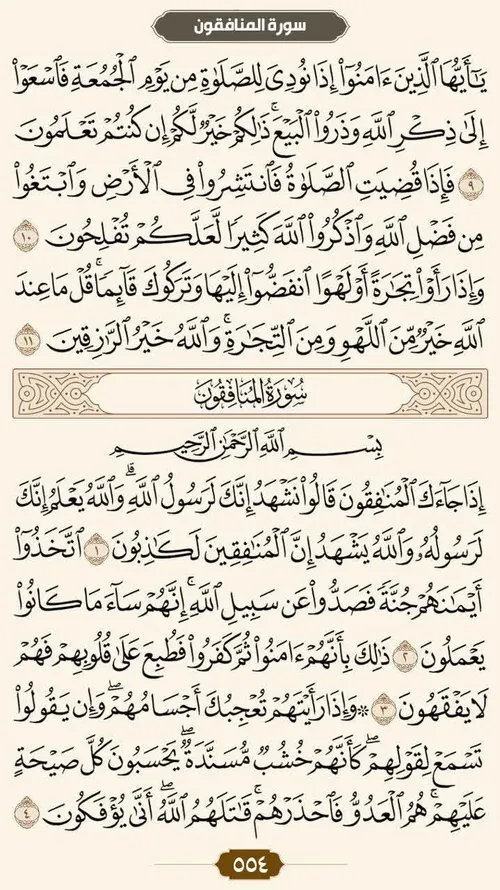 سورة المنافقون
يَـٰٓأَيُّهَا ٱلَّذِينَ ءَامَنُوٓا۟ إِذَا نُودِىَ لِلصَّلَوٰةِ مِن يَوْمِ ٱلْجُمُعَةِ فَٱسْعَوْا۟
إِلَىٰ ذِكْرِ ٱللَّهِ وَذَرُوا۟ ٱلْبَيْعَ ۚ ذَٰلِكُمْ خَيْرٌ لَّكُمْ إِن كُنتُمْ تَعْلَمُونَ
٩ فَإِذَا قُضِيَتِ ٱلصَّلَوٰةُ فَٱنتَشِرُوا۟ فِى ٱلْأَرْضِ وَٱبْتَغُوا۟
مِن فَضْلِ ٱللَّهِ وَٱذْكُرُوا۟ ٱللَّهَ كَثِيرًا لَّعَلَّكُمْ تُفْلِحُونَ ١٠
وَإِذَا رَأَوْا۟ تِجَـٰرَةً أَوْ لَهْوًا ٱنفَضُّوٓا۟ إِلَيْهَا وَتَرَكُوكَ قَآئِمًا ۚ قُلْ مَا عِندَ
ٱللَّهِ خَيْرٌ مِّنَ ٱللَّهْوِ وَمِنَ ٱلتِّجَـٰرَةِ ۚ وَٱللَّهُ خَيْرُ ٱلرَّٰزِقِينَ ١١
سُورَةُ المُنَافِقُونَ
بِسْمِ ٱللَّهِ ٱلرَّحْمَـٰنِ ٱلرَّحِيمِ
إِذَا جَآءَكَ ٱلْمُنَـٰفِقُونَ قَالُوا۟ نَشْهَدُ إِنَّكَ لَرَسُولُ ٱللَّهِ ۗ وَٱللَّهُ يَعْلَمُ إِنَّكَ
لَرَسُولُهُۥ وَٱللَّهُ يَشْهَدُ إِنَّ ٱلْمُنَـٰفِقِينَ لَكَـٰذِبُونَ ١ ٱتَّخَذُوٓا۟
أَيْمَـٰنَهُمْ جُنَّةً فَصَدُّوا۟ عَن سَبِيلِ ٱللَّهِ ۚ إِنَّهُمْ سَآءَ مَا كَانُوا۟
يَعْمَلُونَ ٢ ذَٰلِكَ بِأَنَّهُمْ ءَامَنُوا۟ ثُمَّ كَفَرُوا۟ فَطُبِعَ عَلَىٰ قُلُوبِهِمْ فَهُمْ
لَا يَفْقَهُونَ ٣ ۞ وَإِذَا رَأَيْتَهُمْ تُعْجِبُكَ أَجْسَامُهُمْ ۖ وَإِن يَقُولُوا۟
تَسْمَعْ لِقَوْلِهِمْ ۖ كَأَنَّهُمْ خُشُبٌ مُّسَنَّدَةٌ ۖ يَحْسَبُونَ كُلَّ صَيْحَةٍ
عَلَيْهِمْ ۚ هُمُ ٱلْعَدُوُّ فَٱحْذَرْهُمْ ۚ قَـٰتَلَهُمُ ٱللَّهُ ۖ أَنَّىٰ يُؤْفَكُونَ ٤
٥٥٤